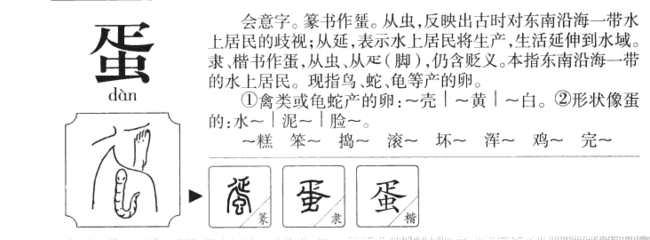 蛋
dàn
会意字。篆书作蜑。从虫，反映出古时对东南沿海一带水
上居民的歧视；从延，表示水上居民将生产，生活延伸到水域。
隶、楷书作蛋，从虫、从疋（脚），仍含贬义。本指东南沿海一带
的水上居民。现指鸟、蛇、龟等产的卵。
①禽类或龟蛇产的卵：～壳｜～黄｜～白。②形状像蛋
的：水～｜泥～｜脸～。
～糕 笨～ 捣～ 滚～ 坏～ 浑～ 鸡～ 完～
篆
蛋 隶
蛋 楷